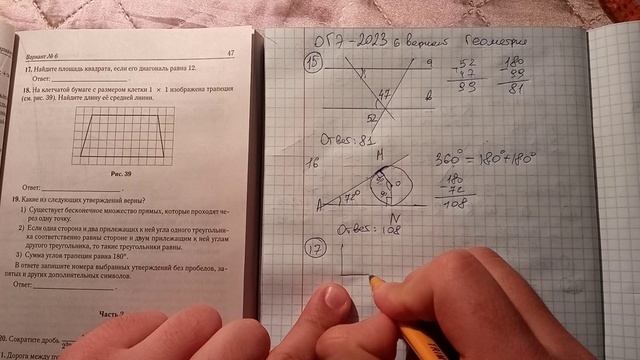 Вариант № 6
47
17. Найдите площадь квадрата, если его диагональ равна 12.
Ответ:
18. На клетчатой бумаге с размером клетки 1 × 1 изображена трапеция
(см. рис. 39). Найдите длину её средней линии.
Рис. 39
Ответ:
19. Какие из следующих утверждений верны?
1) Существует бесконечное множество прямых, которые проходят че-
рез одну точку.
2) Если одна сторона и два прилежащих к ней угла одного треуголь-
ника соответственно равны стороне и двум прилежащим к ней углам
другого треугольника, то такие треугольники равны.
3) Сумма углов трапеции равна 180°.
В ответе запишите номера выбранных утверждений без пробелов, за-
пятых и других дополнительных символов.
Ответ:
20. Сократите дробь
ОГЭ-2023 6 вариант Геометрия
15
a
47
в
52
52
47
99
180
99
81
Ответ: 81
16
M
A
72°
O
N
360° = 180° + 180°
180
72
108
Ответ: 108
17